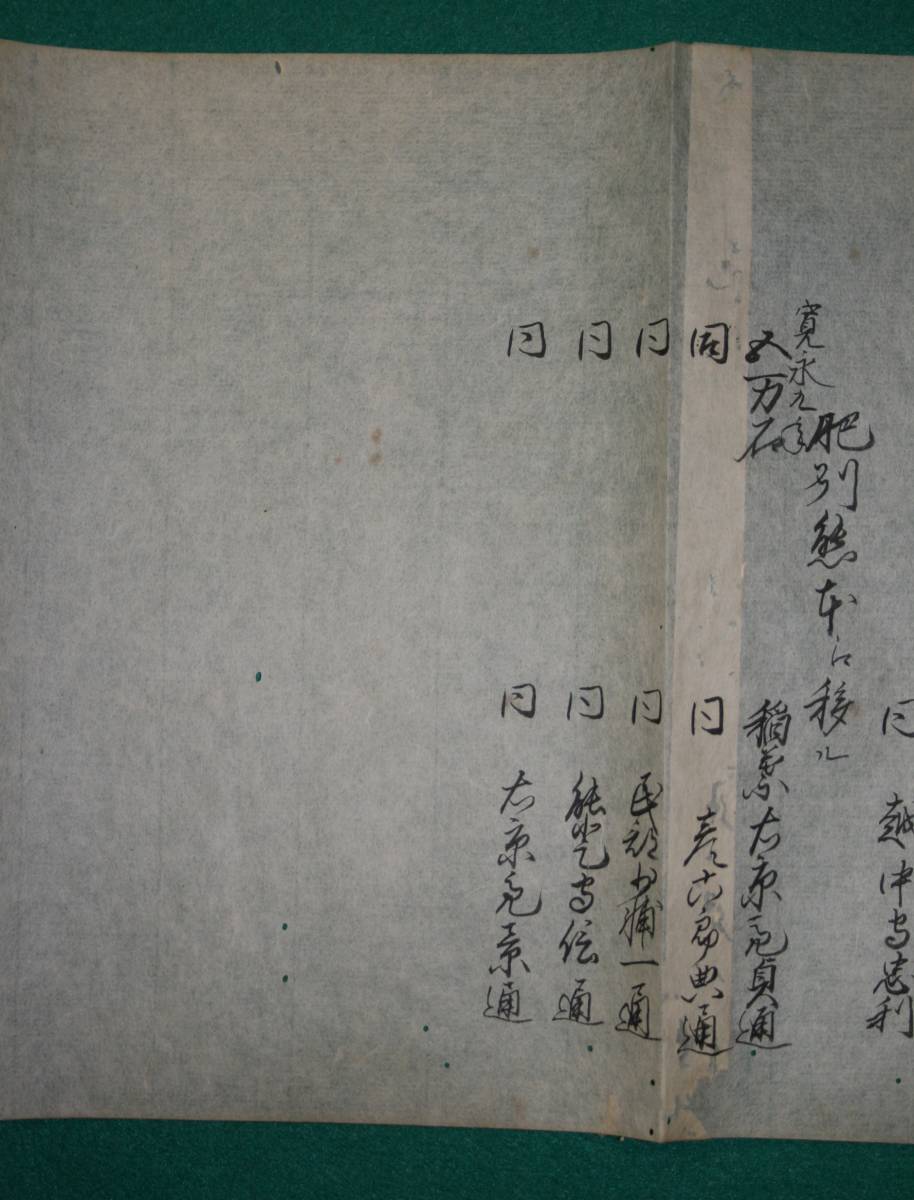 同 越中守忠利
寛永九年
肥州熊本江移ル
五万石 稲葉右京亮貞通
同 同 彦六郎典通
同 同 民部少輔一通
同 同 能登守信通
同 同 右京亮景通